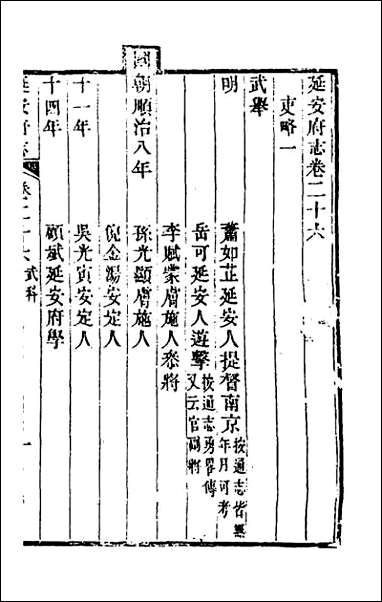 延安府志卷二十六
吏略一
武舉
明
蕭如芷延安人提督南京按通志皆無年月可考
岳可延安人遊擊按通志勇畧傳又云官副將
李賦蒙膚施人叅將
國朝順治八年
孫光顯膚施人
倪金湯安定人
十一年
吳光寅安定人
十四年
顧斌延安府學
延安府志
卷二十六
武科
一